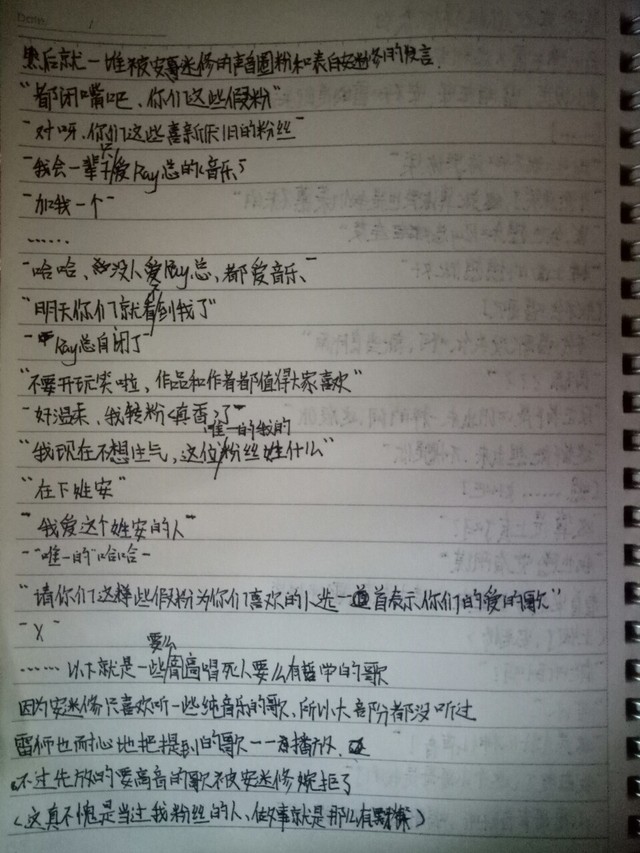 Date. /
然后就一堆被安哥迷修的声音圈粉和表白安迷修的发言.
"都闭嘴吧，你们这些假粉"
"对呀，你们这些喜新厌旧的粉丝"
"我会一辈子只爱Ray总的(音乐)"
"加我一个"
......
"哈哈、没人爱Ray总，都爱音乐"
"明天你们就看不到我了"
"Ray总自闭了"
"不要开玩笑啦，作品和作者都值得大家喜欢"
"好温柔，我转粉<真香>了"
"我现在不想生气，这位唯一的我的粉丝姓什么"
"在下姓安"
"我爱这个姓安的人"
"唯一的"哈哈"
"请你们这些假粉为你们喜欢的人选一首表示你们的爱的歌"
"X"
......以下就是一些要么高唱死人要么有哲学的歌
因为安迷修只喜欢听一些纯音乐的歌、所以大部分都没听过
雷师也耐心地把提到的歌一一播放、
不过先放的要高音的歌被安迷修婉拒了
(这真不愧是当过我粉丝的人、做事就是那么有默契)